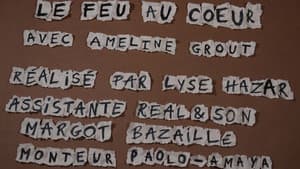 LE FEU AU COEUR
AVEC AMELINE GROUT
RÉALISÉ PAR LYSE HAZAR
ASSISTANTE REAL&SON
MARGOT BAZAILLE
MONTEUR PAOLO-AMAYA